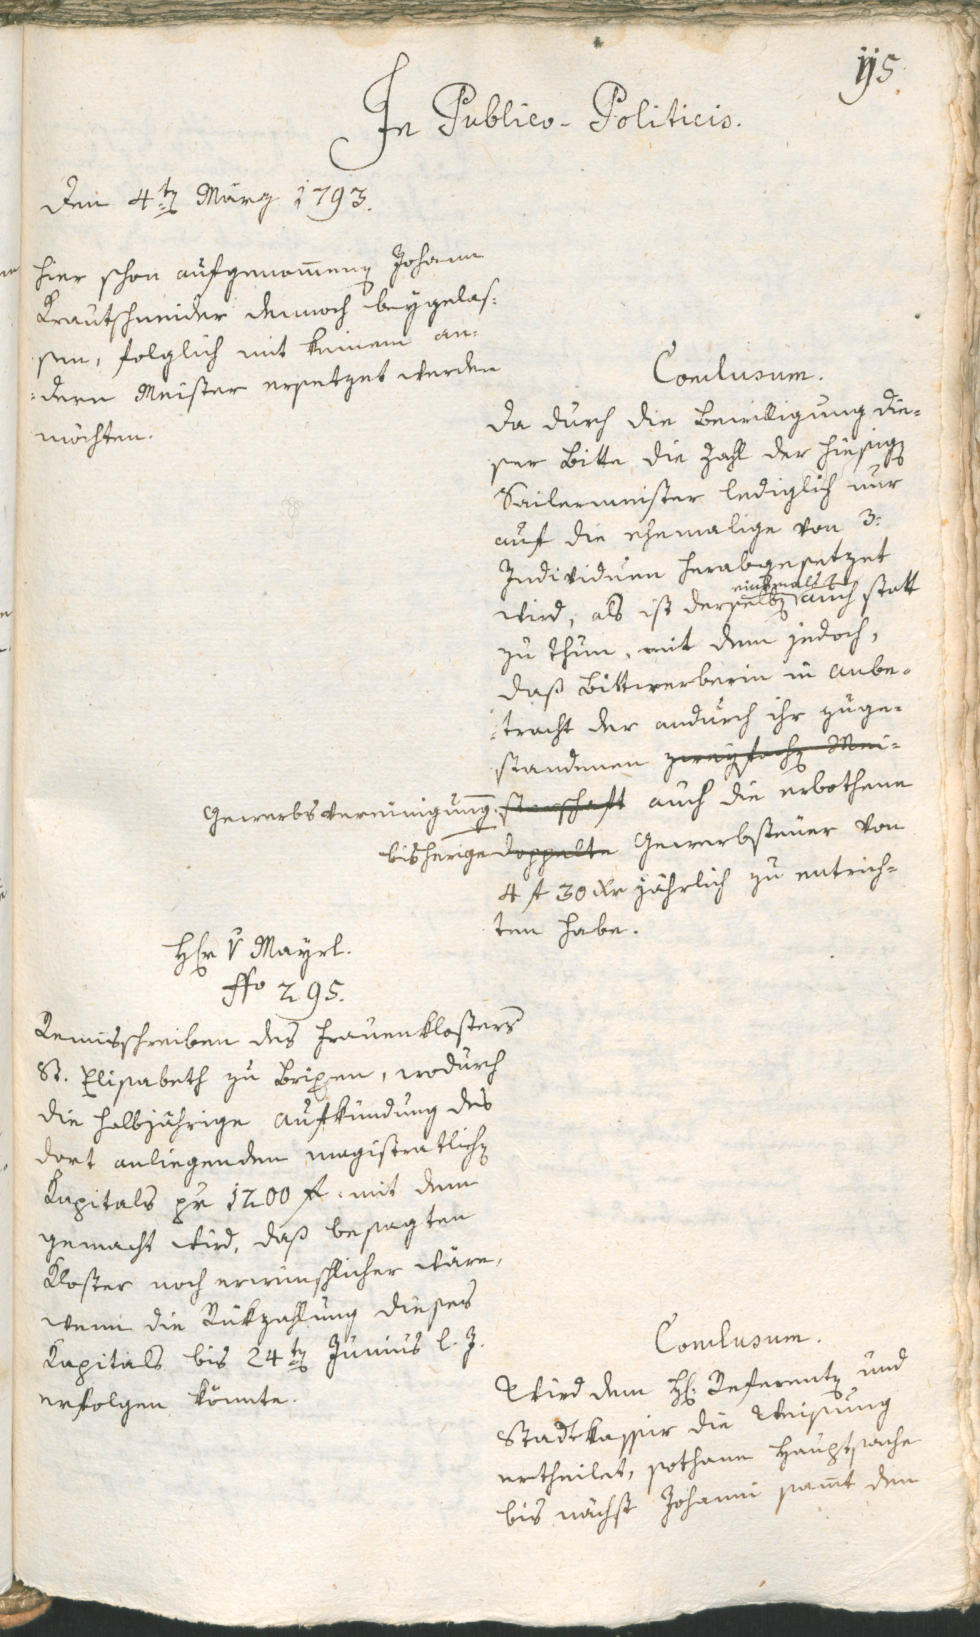 115
In Publico-Politicis.
den 4ten März 1793.
hier schon aufgenommenen Johann
Krautschneider dennoch beygelas-
sen, folglich mit keinem an-
dern Meister ersetzet werden
möchten.
Conclusum.
Da durch die Bewilligung die-
ser Bitte die Zahl der hiesigen
Sailermeister lediglich nur
auf die ehemalige von 3.
Individuen herabgesetzet
wird, als ist derselben auch statt
zu thun, mit dem jedoch,
daß Bittwerberin in anbe-
tracht der andurch ihr zuge-
standenen zweyfachen Mei-
Gewerbsvereinigung sterschaft auch die erbothene
bisherige doppelte Gewerbsteuer von
4 f 30 xr jährlich zu entrich-
ten habe.
Hr v Mayrl.
No 295.
Remisschreiben des Frauenklosters
St. Elisabeth zu Brixen, wodurch
die halbjährige Aufkündung des
dort anliegenden magistratlichen
Kapitals pr 1200 f. mit dem
gemacht wird, daß besagten
Kloster noch erwünschlicher wäre,
wenn die Rükzahlung dieses
Kapitals bis 24ten Junius l. J.
erfolgen könnte.
Conclusum.
Wird dem H. Referenten und
Stadtkassir die Weisung
ertheilet, sothane Hauptsache
bis nächst Johanni samt dem